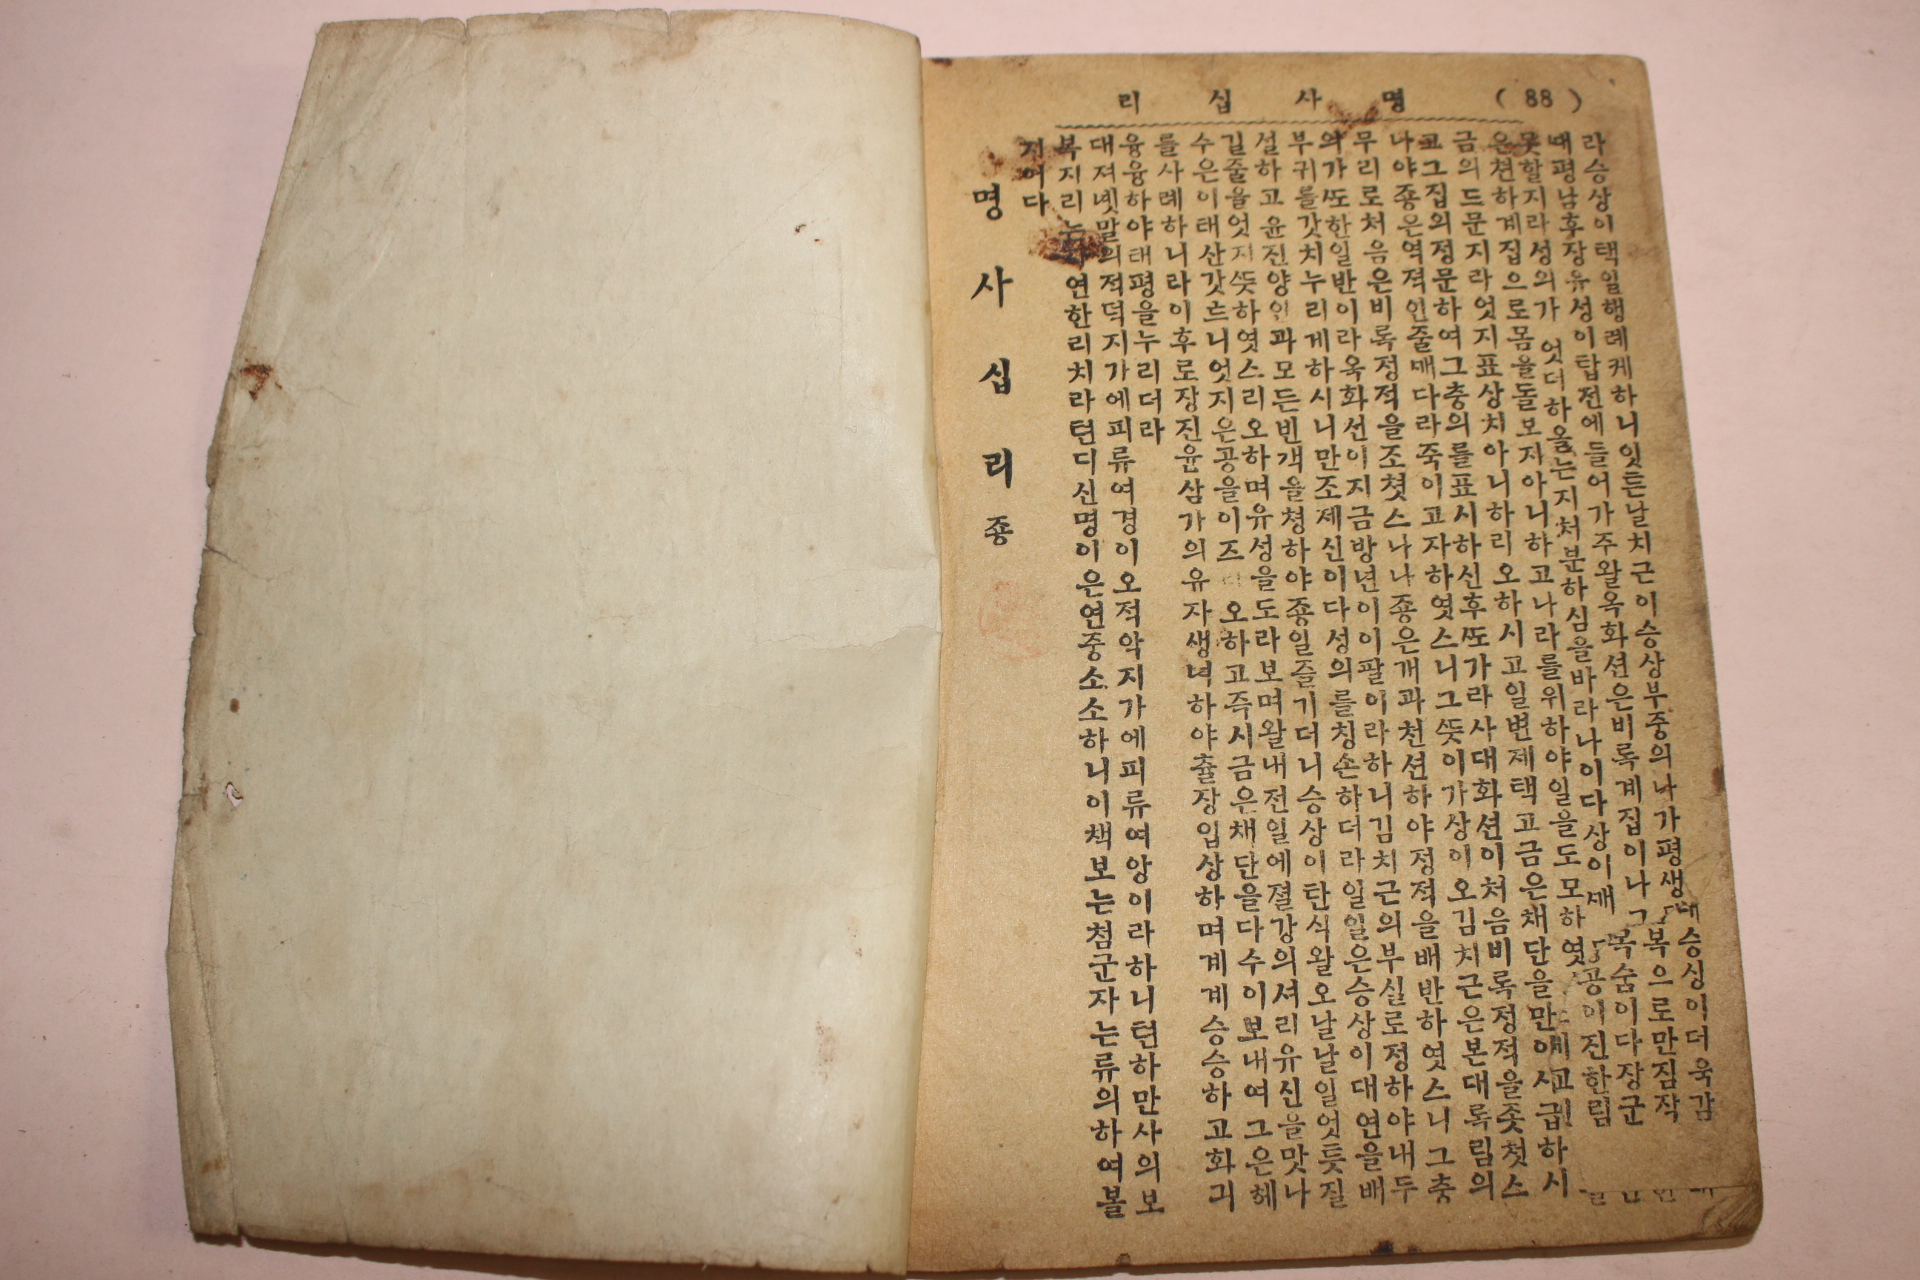 ( 88 ) 명사십리
라승상이택일행례케하니잇튼날치근이승상부중의나가평생
때평남후장유성이탑전에들어가주왈옥화션은비록계집이나
못할지라성의가엇더하올는지처분하심을바라나이다상이
은천하계집으로몸을돌보지아니하고나라를위하야일을도모하엿
금의드문지라엇지표상치아니하리오하시고일변제택고금은채단을만이사급하시
고그집의정문하여그충의를표시하신후또가라사대화션이처음비록정적을좃첫스
나야죵은역적인줄깨다라죽이고자하엿스니그뜻이가상이오김치근은본대록림의
무리로처음은비록정적을조첫스나나죵은개과천션하야정적을배반하엿스니그충
의가또한일반이라옥화선이지금방년이이팔이라하니김치근의부실로정하야내두
부귀를갓치누리게하시니만조제신이다성의를칭손하더라일일은승상이대연을배
설하고윤진양인과모든빈객을쳥하야죵일즐기더니승상이탄식왈오날날일엇듯질
길줄을엇지뜻하엿스리오하며유성을도라보며왈내전일에졀강의셔리유신을맛나
수은이태산갓흐니엇지은공을이즈 오하고즉시금은채단을다수이보내여그은혜
를사례하니라이후로장진윤삼가의유자생녀하야츌장입상하며계계승승하고화긔
융융하야태평을누리더라
대져녯말의적덕지가에피류여경이오적악지가에피류여앙이라하니텬하만사의보
복지리는 연한리치라텬디신명이은연중소소하니이책보는쳠군자는류의하여볼
지어다
명사십리죵